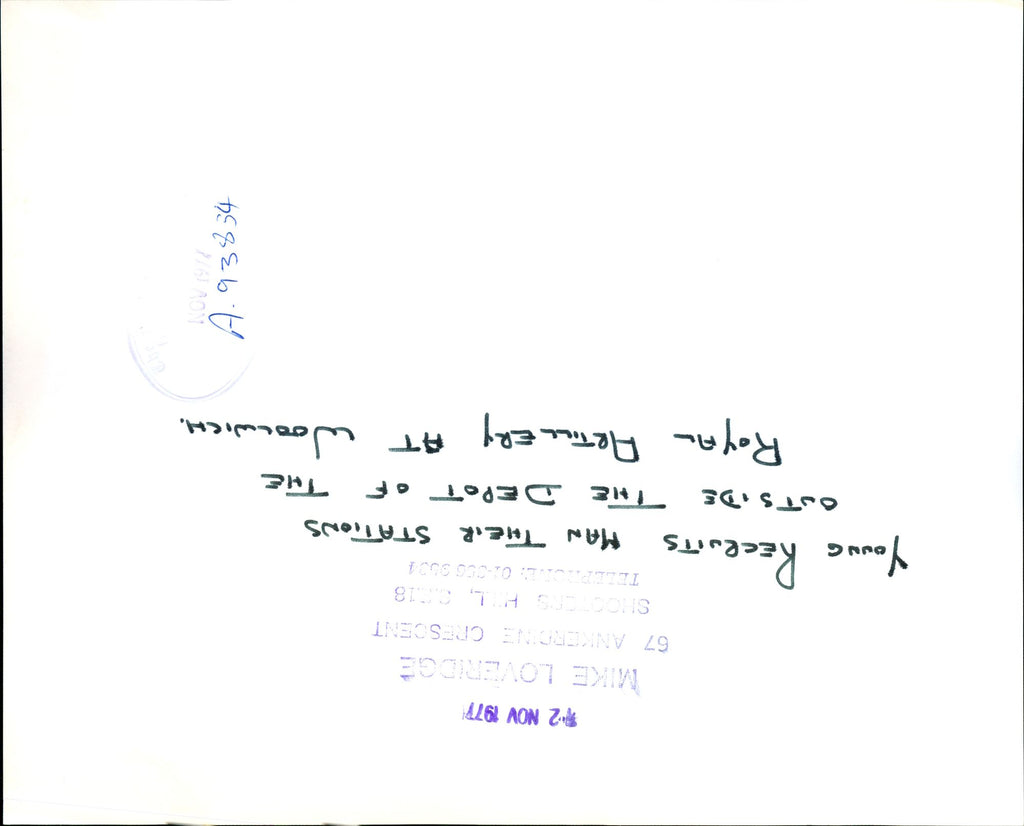 2 NOV 1977
MIKE LOVERIDGE
67 ANKERDINE CRESCENT
SHOOTERS HILL, S.E.18
TELEPHONE: 01-856
YOUNG RECRUITS MAN THEIR STATIONS
OUTSIDE THE DEPOT OF THE
ROYAL ARTILLERY AT WOOLWICH.
NOV 197
A.93834